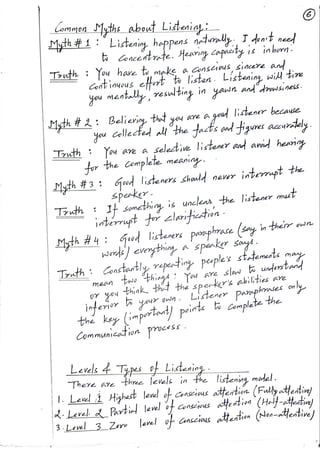 6
Common Myths about Listening :
Myth # 1 : Listening happens naturally. I don't need
to concentrate. Hearing capacity is inborn.
Truth : You have to make a conscious, sincere and
continuous effort to listen. Listening will tire
you mentally, resulting in yawn and drowsiness.
Myth # 2 : Believing that you are a good listener because
you collected all the facts and figures accurately.
Truth : You are a selective listener and avoid hearing
for the complete meaning.
Myth # 3 : Good listeners should never interrupt the
speaker.
Truth : If something is unclear the listener must
interrupt for clarification.
Myth # 4 : Good listeners paraphrase (say in their own
words) everything a speaker says.
Truth : Constantly repeating people's statements may
mean two things : You are slow to understand
or you think that the speaker's abilities are
inferior to your own. Listener paraphrases only
the key (important) points to complete the
communication process.
Levels & Types of Listening.
There are three levels in the listening model.
1. Level 1 Highest level of conscious attention (Fully attentive)
2. Level 2 Partial level of conscious attention (Half-attentive)
3. Level 3 Zero level of conscious attention (Non-attentive)